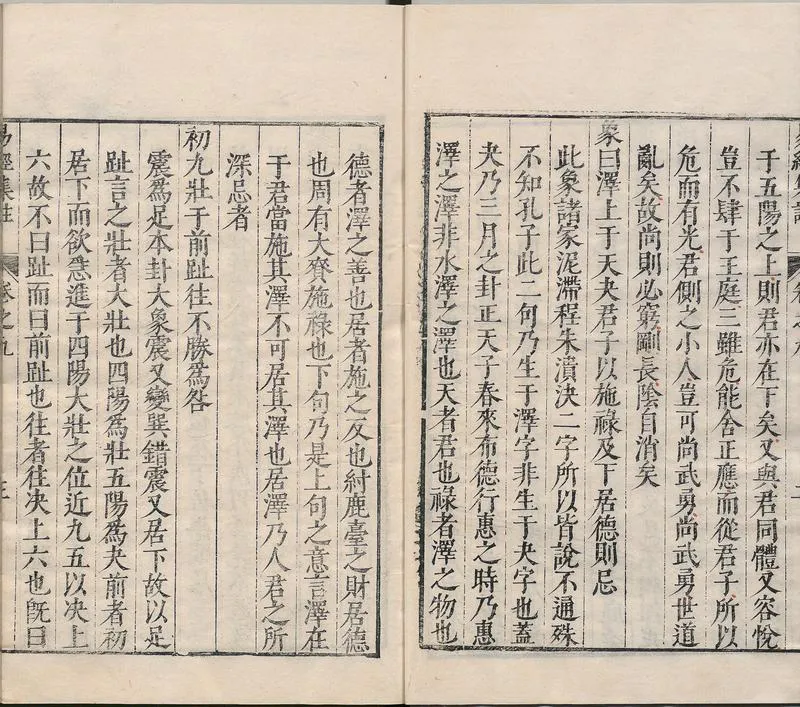 于五陽之上則君亦在下矣又與君同體又容悅
豈不肆于王庭三雖危能舍正應而從君子所以
危而有光君側之小人豈可尚武勇尚武勇世道
亂矣故尚則必窮剛長陰自消矣
象曰澤上于天夬君子以施祿及下居德則忌
此象諸家泥滯程朱潰決二字所以皆說不通殊
不知孔子此二句乃生于澤字非生于夬字也蓋
夬乃三月之卦正天子春來布德行惠之時乃惠
澤之澤非水澤之澤也天者君也祿者澤之物也
德者澤之善也居者施之反也紂鹿臺之財居德
也周有大賚施祿也下句乃是上句之意言澤在
于君當施其澤不可居其澤也居澤乃人君之所
深忌者
初九壯于前趾往不勝為咎
震爲足本卦大象震又變巽錯震又居下故以足
趾言之壯者大壯也四陽爲壯五陽爲夬前者初
居下而欲急進于四陽大壯之位近九五以決上
六故不曰趾而曰前趾也往者往決上六也旣曰
易經集註 卷之九 三